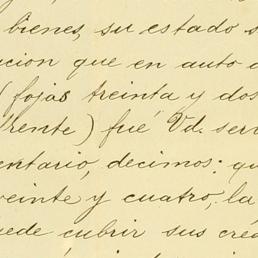 bienes, su estado s
cion que en auto d
(fojas treinta y dos
frente) fué Vd. serv
entario, decimos: qu
veinte y cuatro, la
uede cubrir sus cré